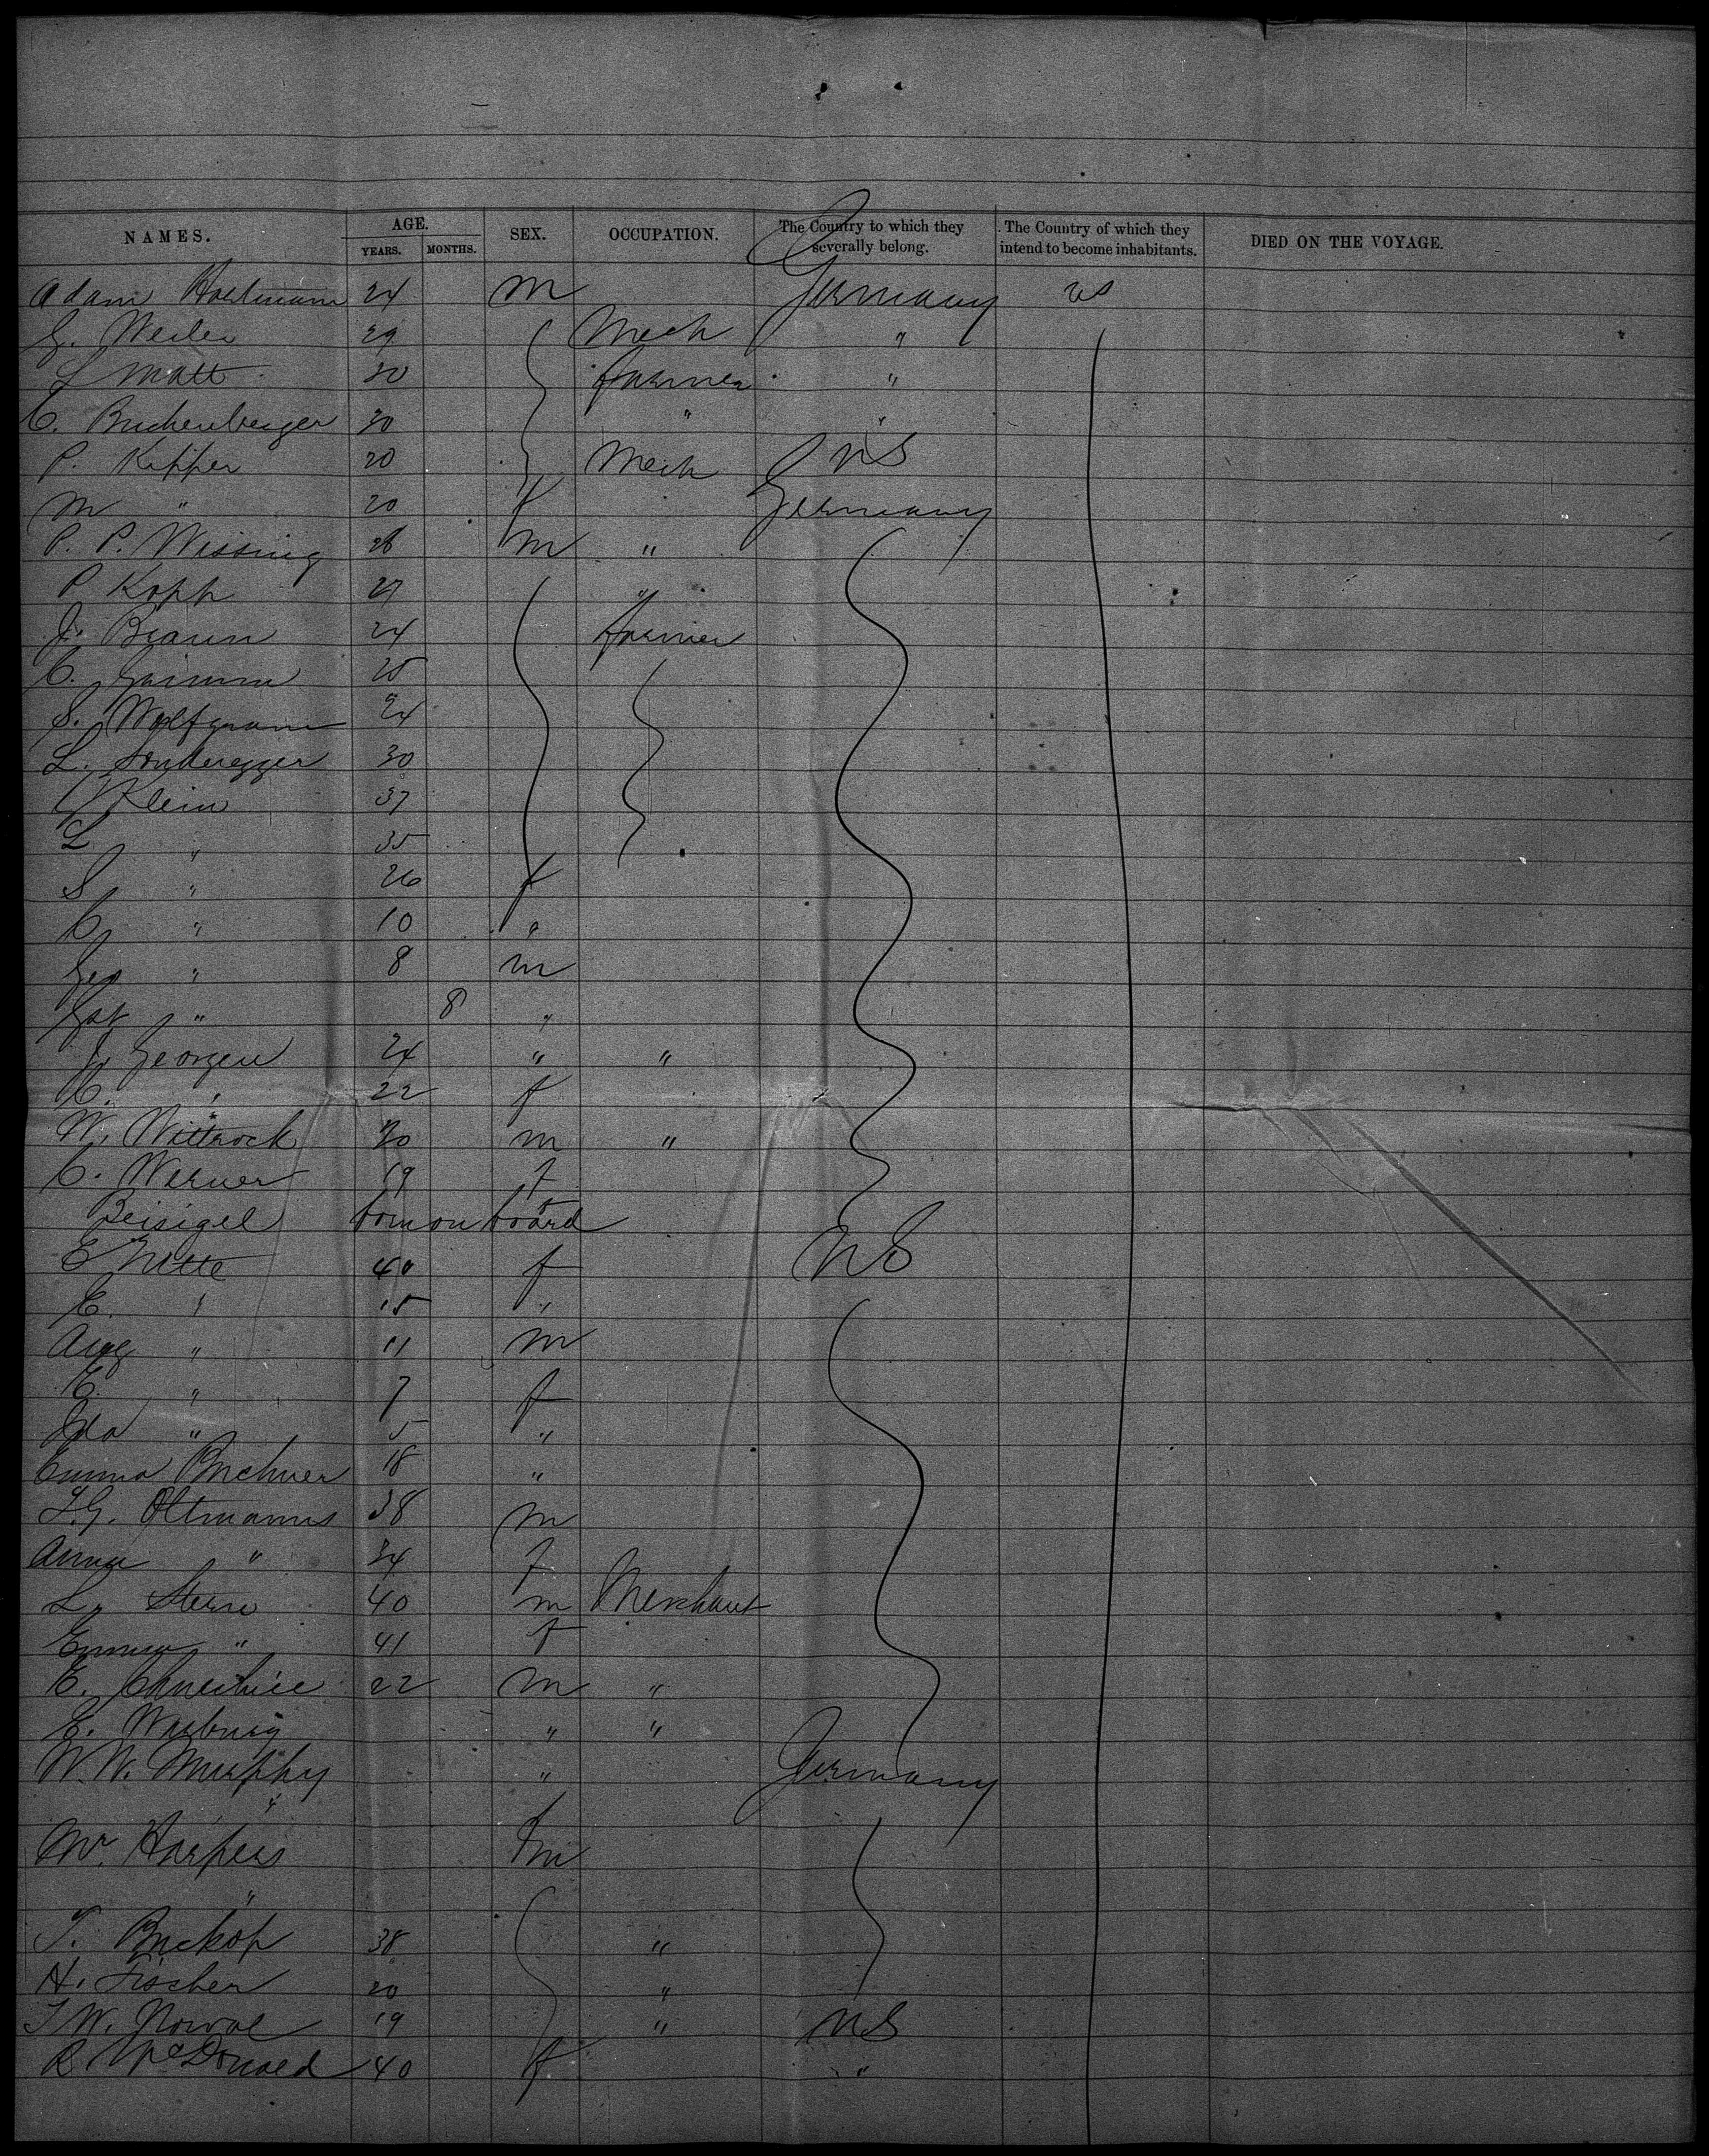 NAMES. AGE. SEX. OCCUPATION. The Country to which they severally belong. The Country of which they intend to become inhabitants. DIED ON THE VOYAGE.
YEARS. MONTHS.
Adam 24 m Germany us
G. Weiler 29 Mech "
L Matt 30 farmer "
C. Buchenberger 30 " "
P. Kipper 20 Mech US
M " 20 f Germany
P. P. Wissing 26 m "
P Kopp 27 "
J. Braun 24 farmer
C. Grimm 25
S. Wolfgram 24
L. Sonderegger 30
Klein 37
L " 35
S " 26 f
C " 10 "
Geo " 8 m
" 8 "
J. Georgen 24 " "
C. " 22 f
W. Wittrock 30 m "
C. Werner 19 f
Beisigel born on board
E Nette 40 f US
E. " 15 "
Aug " 11 m
E. " 7 f
Ida " 5 "
Emma Buchner 18 "
Oltmanns 38 m
Anna " 34 f
L. Stern 40 m Merchant
Emma " 41 f
E. 22 m "
E. Warburg " "
W. W. Murphy " Germany
"
Mr. Harpers m
"
T. Buckop 38 "
H. Fischer 20 "
W. 19 " US
R McDonald 40 f "